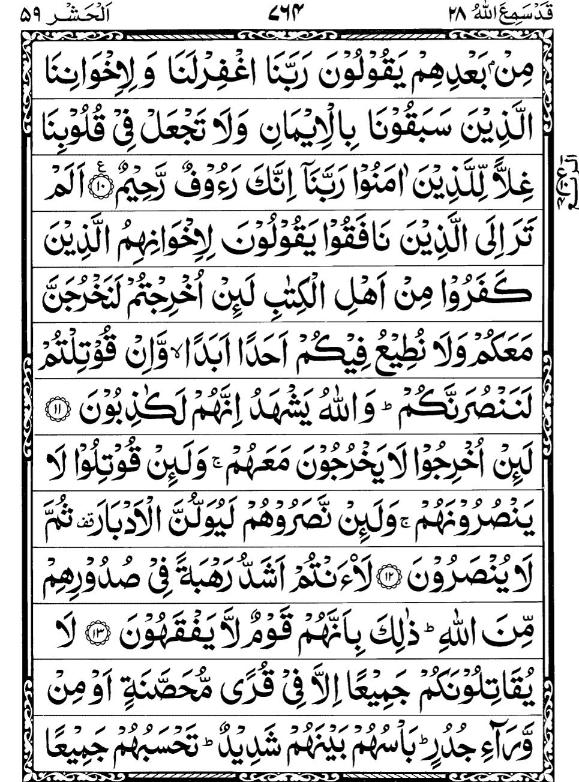 قَدْسَمِعَ اللهُ ٢٨ ٧٦٤ اَلْحَشْر ٥٩
مِنْۢ بَعْدِهِمْ يَقُوْلُوْنَ رَبَّنَا اغْفِرْلَنَا وَلِاِخْوَانِنَا
الَّذِيْنَ سَبَقُوْنَا بِالْاِيْمَانِ وَلَا تَجْعَلْ فِيْ قُلُوْبِنَا
غِلًّا لِّلَّذِيْنَ اٰمَنُوْا رَبَّنَآ اِنَّكَ رَءُوْفٌ رَّحِيْمٌ ۧ ١٠ اَلَمْ
تَرَ اِلَى الَّذِيْنَ نَافَقُوْا يَقُوْلُوْنَ لِاِخْوَانِهِمُ الَّذِيْنَ
كَفَرُوْا مِنْ اَهْلِ الْكِتٰبِ لَئِنْ اُخْرِجْتُمْ لَنَخْرُجَنَّ
مَعَكُمْ وَلَا نُطِيْعُ فِيْكُمْ اَحَدًا اَبَدًا ۙ وَّاِنْ قُوْتِلْتُمْ
لَنَنْصُرَنَّكُمْ ؕ وَاللهُ يَشْهَدُ اِنَّهُمْ لَكٰذِبُوْنَ ١١
لَئِنْ اُخْرِجُوْا لَا يَخْرُجُوْنَ مَعَهُمْ ۚ وَلَئِنْ قُوْتِلُوْا لَا
يَنْصُرُوْنَهُمْ ۚ وَلَئِنْ نَّصَرُوْهُمْ لَيُوَلُّنَّ الْاَدْبَارَ قف ثُمَّ
لَا يُنْصَرُوْنَ ١٢ لَاَنْتُمْ اَشَدُّ رَهْبَةً فِيْ صُدُوْرِهِمْ
مِّنَ اللهِ ؕ ذٰلِكَ بِاَنَّهُمْ قَوْمٌ لَّا يَفْقَهُوْنَ ١٣ لَا
يُقَاتِلُوْنَكُمْ جَمِيْعًا اِلَّا فِيْ قُرًى مُّحَصَّنَةٍ اَوْ مِنْ
وَّرَآءِ جُدُرٍ ؕ بَاْسُهُمْ بَيْنَهُمْ شَدِيْدٌ ؕ تَحْسَبُهُمْ جَمِيْعًا